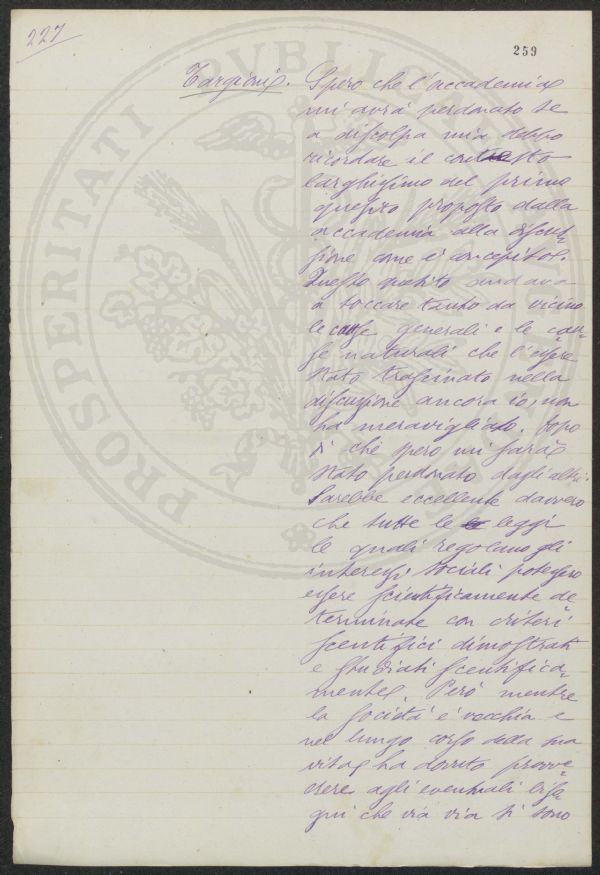 227
259
PROSPERITATI PVBLICAE
Targioni. Spero che l'accademia
mi avrà perdonato se
a discolpa mia debbo
ricordare il contesto
larghissimo del primo
quesito proposto dalla
accademia alla discus-
sione come è concepito.
Questo quesito andava
a toccare tanto da vicino
le cause generali e le cau-
se naturali che l'essere
stato trascinato nella
discussione ancora io non
ha meravigliato. Dopo
di che spero mi sarà
stato perdonato dagli altri.
Sarebbe eccellente davvero
che tutte le leggi
le quali regolano gli
interessi sociali potessero
essere scientificamente de
terminate con criteri
scentifici dimostrati
e studiati scentifica-
mente. Però mentre
la società è vecchia e
nel lungo corso della sua
vita ha dovuto provve-
dere agli eventuali biso-
gni che via via si sono